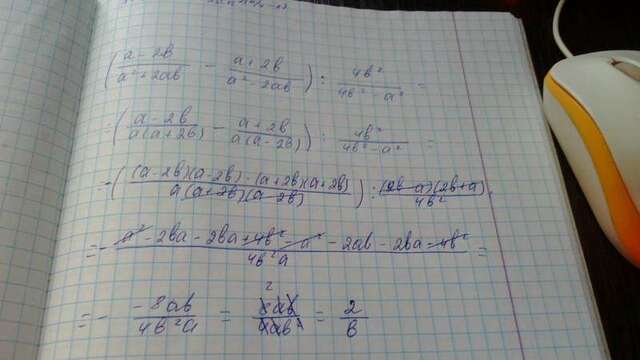 ( (a - 2b)/(a² + 2ab) - (a + 2b)/(a² - 2ab) ) : 4b²/(4b² - a²) =
= ( (a - 2b)/(a(a + 2b)) - (a + 2b)/(a(a - 2b)) ) : 4b²/(4b² - a²) =
= ( ((a - 2b)(a - 2b) - (a + 2b)(a + 2b))/(a(a + 2b)(a - 2b)) ) : ((2b - a)(2b + a))/(4b²) =
= - (a² - 2ba - 2ba + 4b² - a² - 2ab - 2ba - 4b²)/(4b²a) =
= - (-8ab)/(4b²a) = 2 8ab/4ab² = 2/b